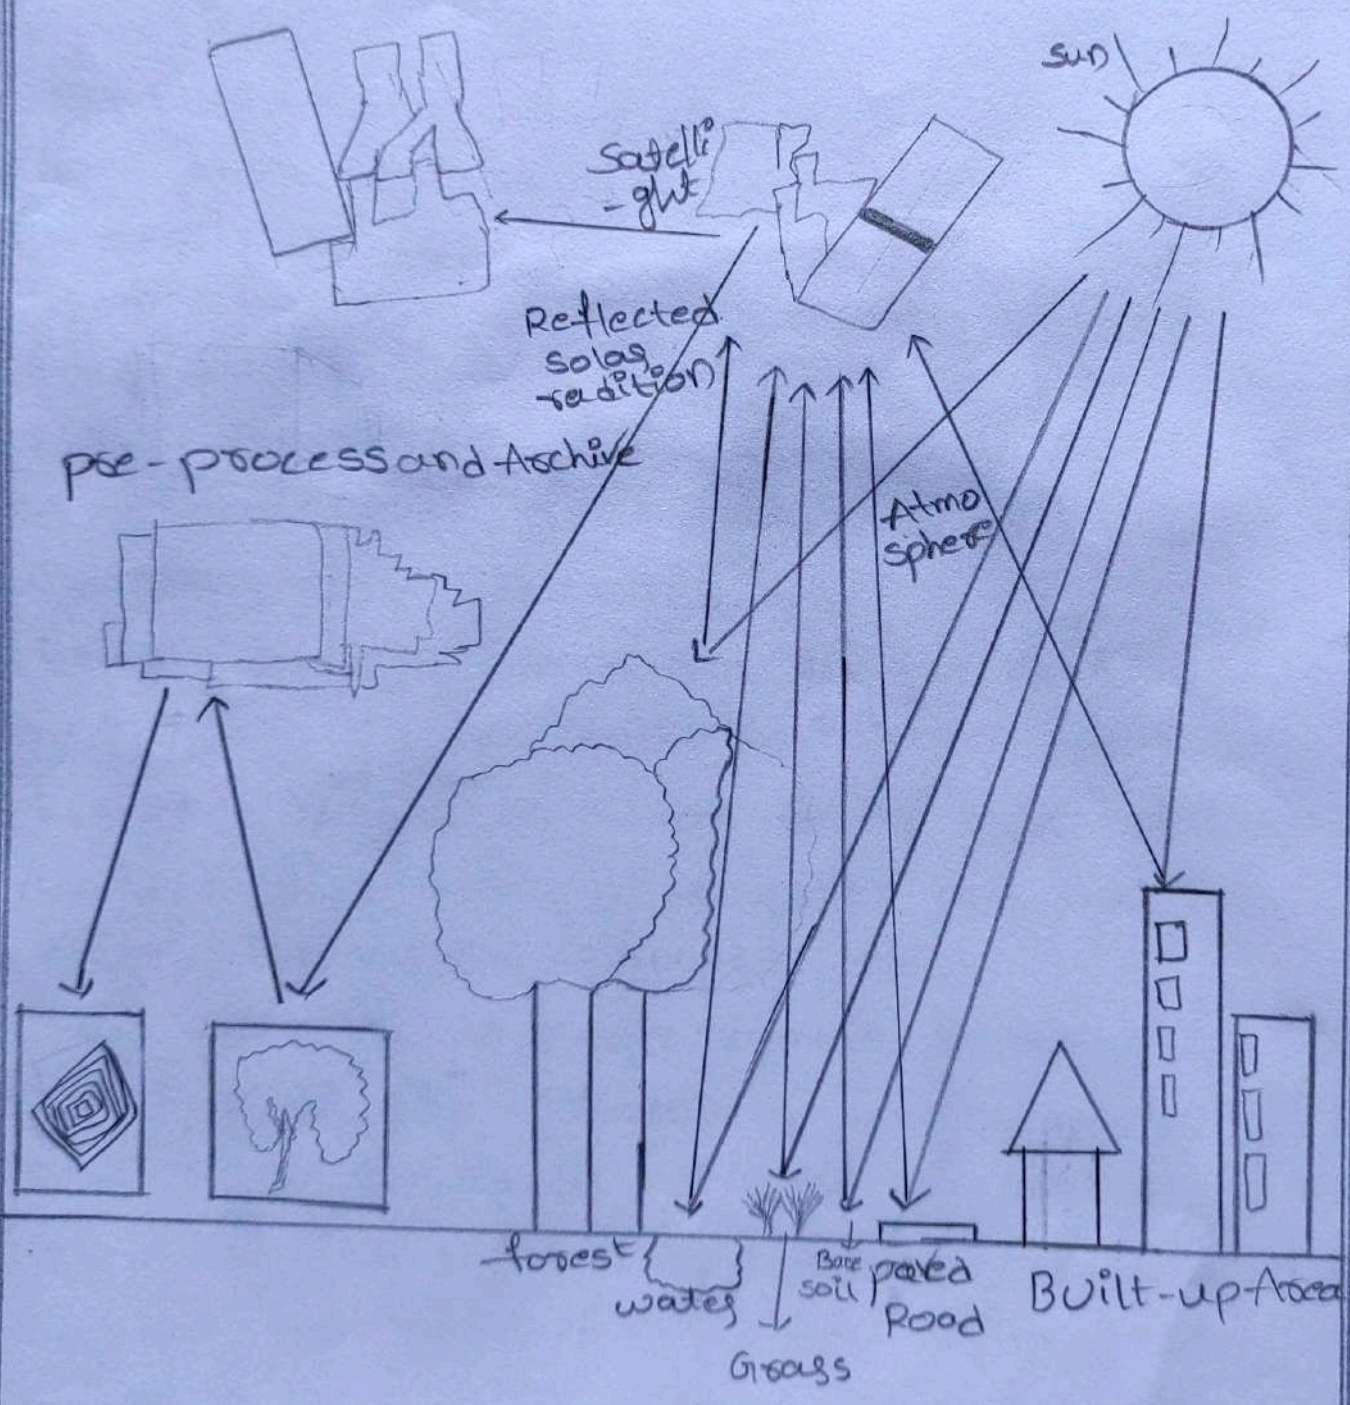 sun
Satelli
-ght
Reflected
solar
radition
pre-process and Archive
Atmo
sphere
forest
water
Grass
Bare
soil
paved
Road
Built-up-Area